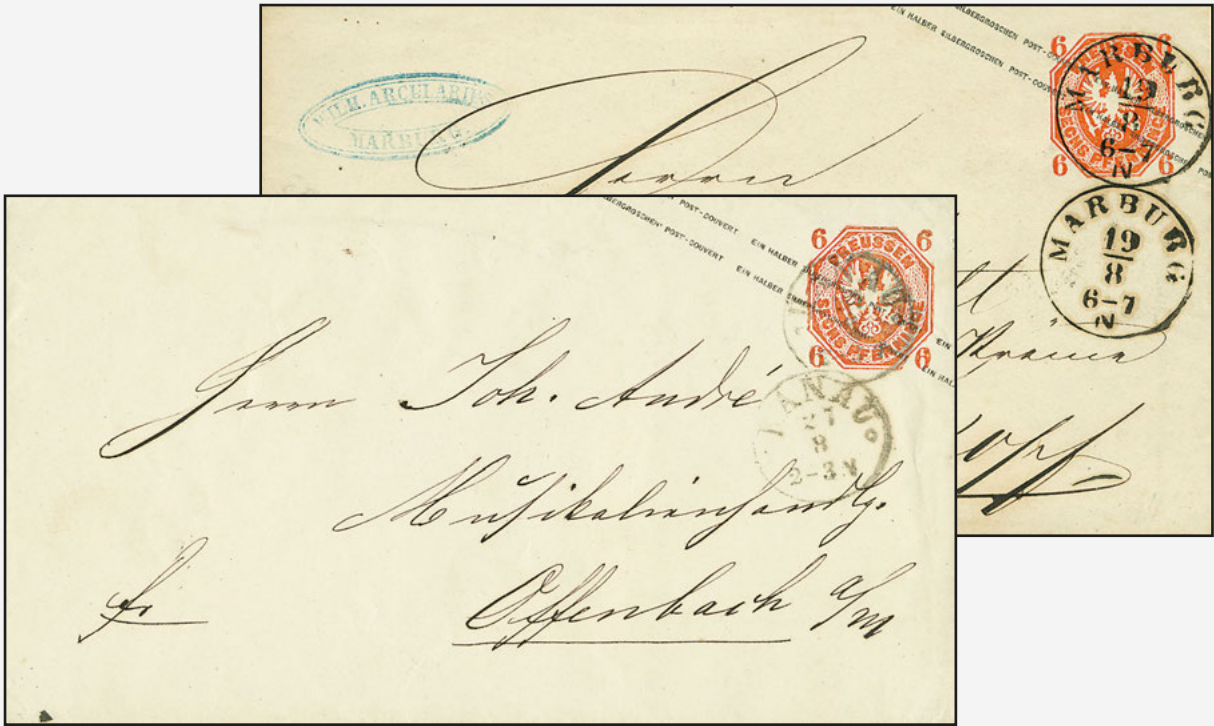 EIN HALBER SILBERGROSCHEN POST-COUVERT
SILBERGROSCHEN POST-COUVERT
WILH. ARCULARIUS
MARBURG.
6 6
PREUSSEN
SECHS PFENNIGE
6 6
MARBURG
19
8
6-7
N
Herrn
MARBURG
19
8
6-7
N
POST-COUVERT EIN HALBER
SILBERGROSCHEN POST-COUVERT EIN HALBER
6 6
PREUSSEN
SECHS PFENNIGE
6 6
HANAU
27
8
2-3 N
EIN
EIN HAL
Herrn Joh. André
Musikalienhandlg.
fr Offenbach a/m